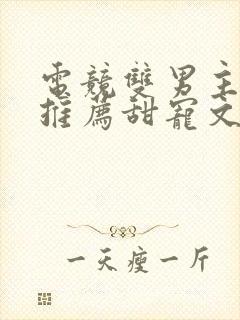 電競雙男主
推薦甜寵文
一天瘦一斤